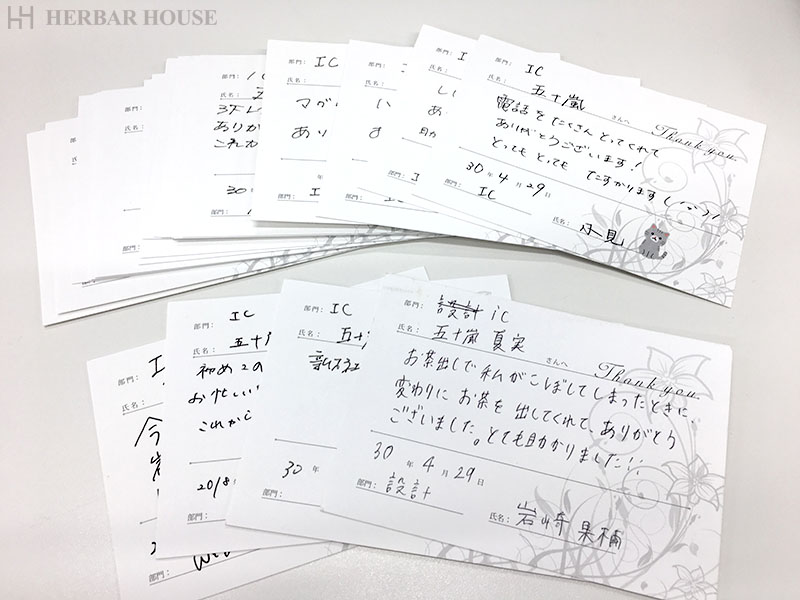 HERBAR HOUSE
部門： IC
氏名： 五十嵐 さんへ
Thank you
電話をたくさんとってくれて
ありがとうございます！
とってもとっても たすかります
30年4月29日
IC
氏名： 小見
部門： IC
氏名：
部門： IC
氏名： 五
ありが
これか
30
部門：
部門：
氏名：
部門：
部門：
部門： 設計 ic
氏名： 五十嵐 夏実 さんへ
Thank you
お茶出しで私がこぼしてしまったときに、
変わりにお茶を出してくれて、ありがとう
ございました。とても助かりました!!
30年4月29日
部門： 設計
氏名： 岩崎 果楠
部門： IC
氏名： 五十
30年
部門：
部門： IC
氏名： 五十
初めての
お忙しい
これから
2018
部門：
部門： I
氏名：
今
部門：